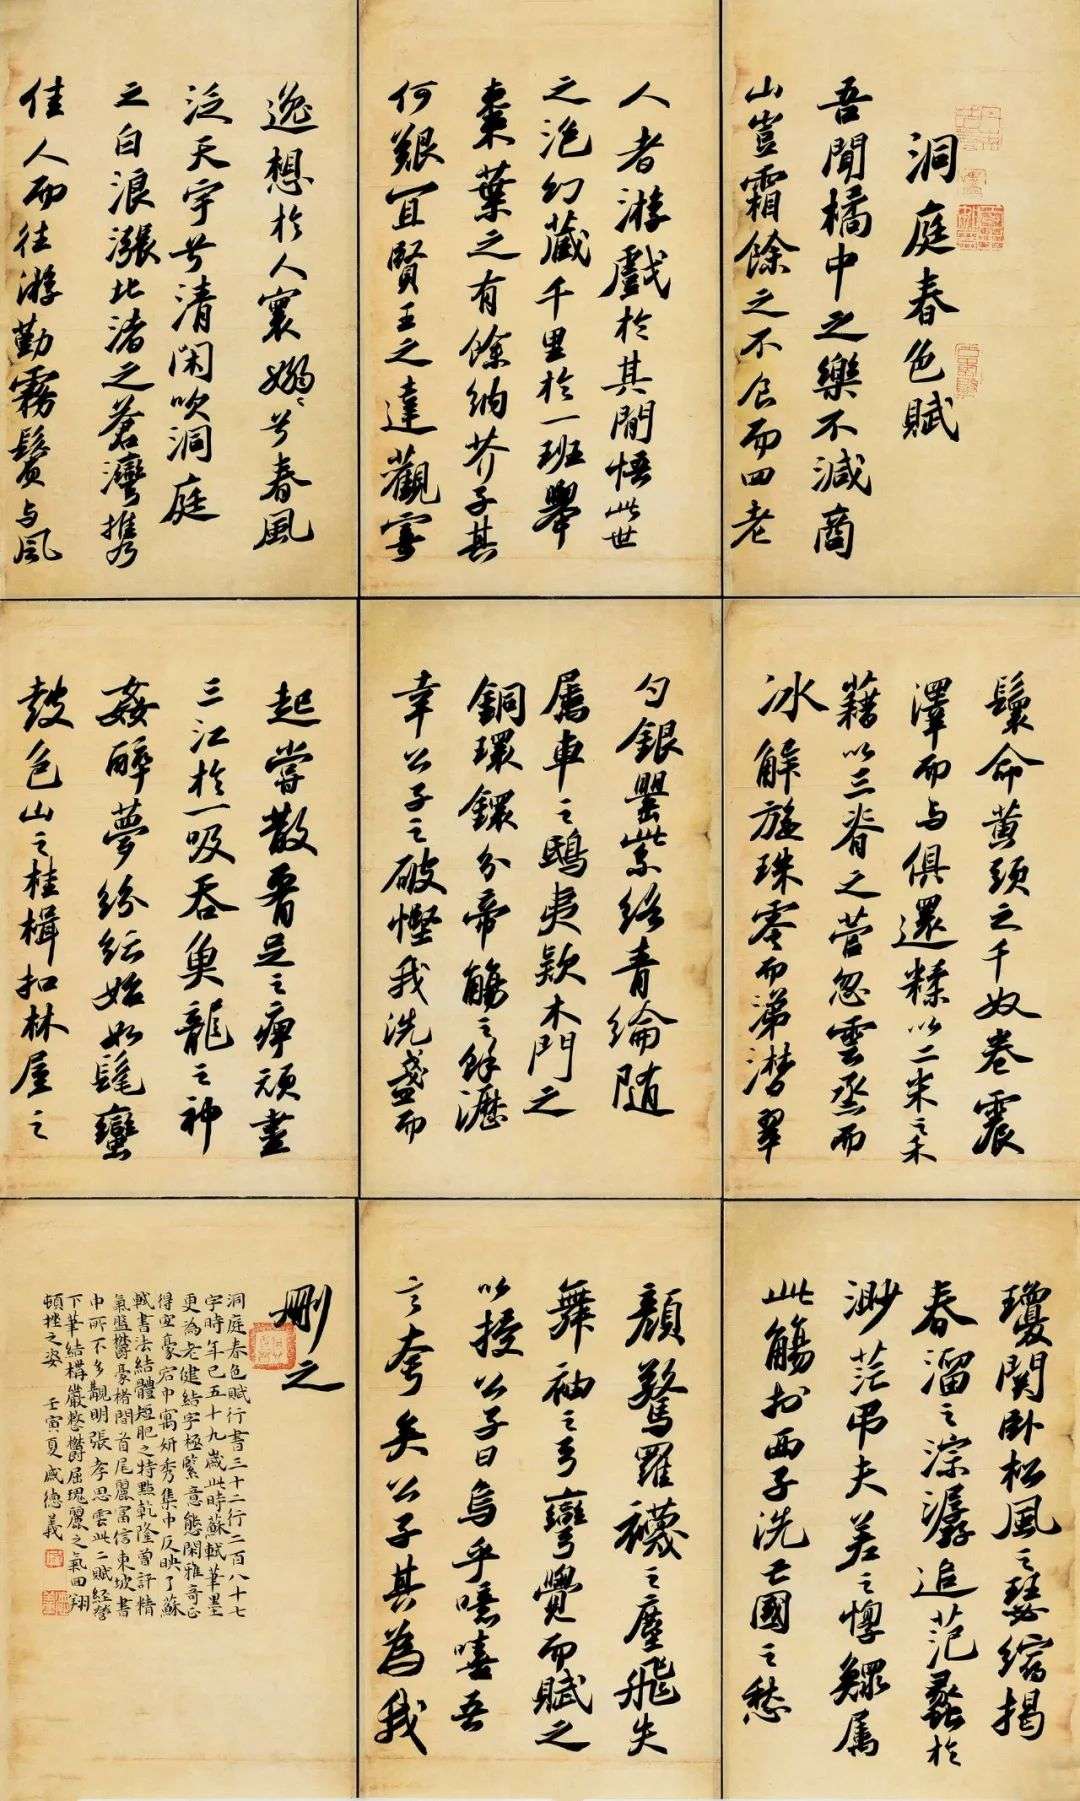 洞庭春色賦
吾聞橘中之樂不減商
山豈霜餘之不食而四老
人者游戲於其間悟此世
之泡幻藏千里於一班舉
棗葉之有餘納芥子其
何艱宜賢王之達觀寄
逸想於人寰嫋〻兮春風
泛天宇兮清閑吹洞庭
之白浪漲北渚之蒼灣携
佳人而往游勤霧鬢与風
鬟命黃頭之千奴卷震
澤而与俱還糅以二米之禾
藉以三脊之菅忽雲烝而
冰解旋珠零而涕潸翠
勺銀罌紫絡青綸随
属車之鴟夷款木門之
銅環鐶分帝觴之餘瀝
幸公子之破慳我洗盞而
起嘗散腰足之痺頑盡
三江於一吸吞魚龍之神
姦醉夢紛紜始如髦蠻
鼓包山之桂楫扣林屋之
瓊關卧松風之瑟縮揭
春溜之淙潺追范蠡於
渺茫弔夫差之惸鰥属
此觴於西子洗亡國之愁
顏驚羅襪之塵飛失
舞袖之弓彎覺而賦之
以授公子曰烏乎噫嘻吾
言夸矣公子其為我
刪之
洞庭春色賦行書三十二行二百八十七
字時年已五十九歲此時蘇軾筆墨
更為老健結字極緊意態閑雅奇正
得宜豪宕中寓妍秀集中反映了蘇
軾書法結體短肥之特點乾隆曾評精
氣盤鬱豪楮間首尾麗富信東坡書
中所不多觀明張孝思云此二賦經營
下筆結構嚴整鬱屈瑰麗之氣回翔
頓挫之姿 壬寅夏盛德義